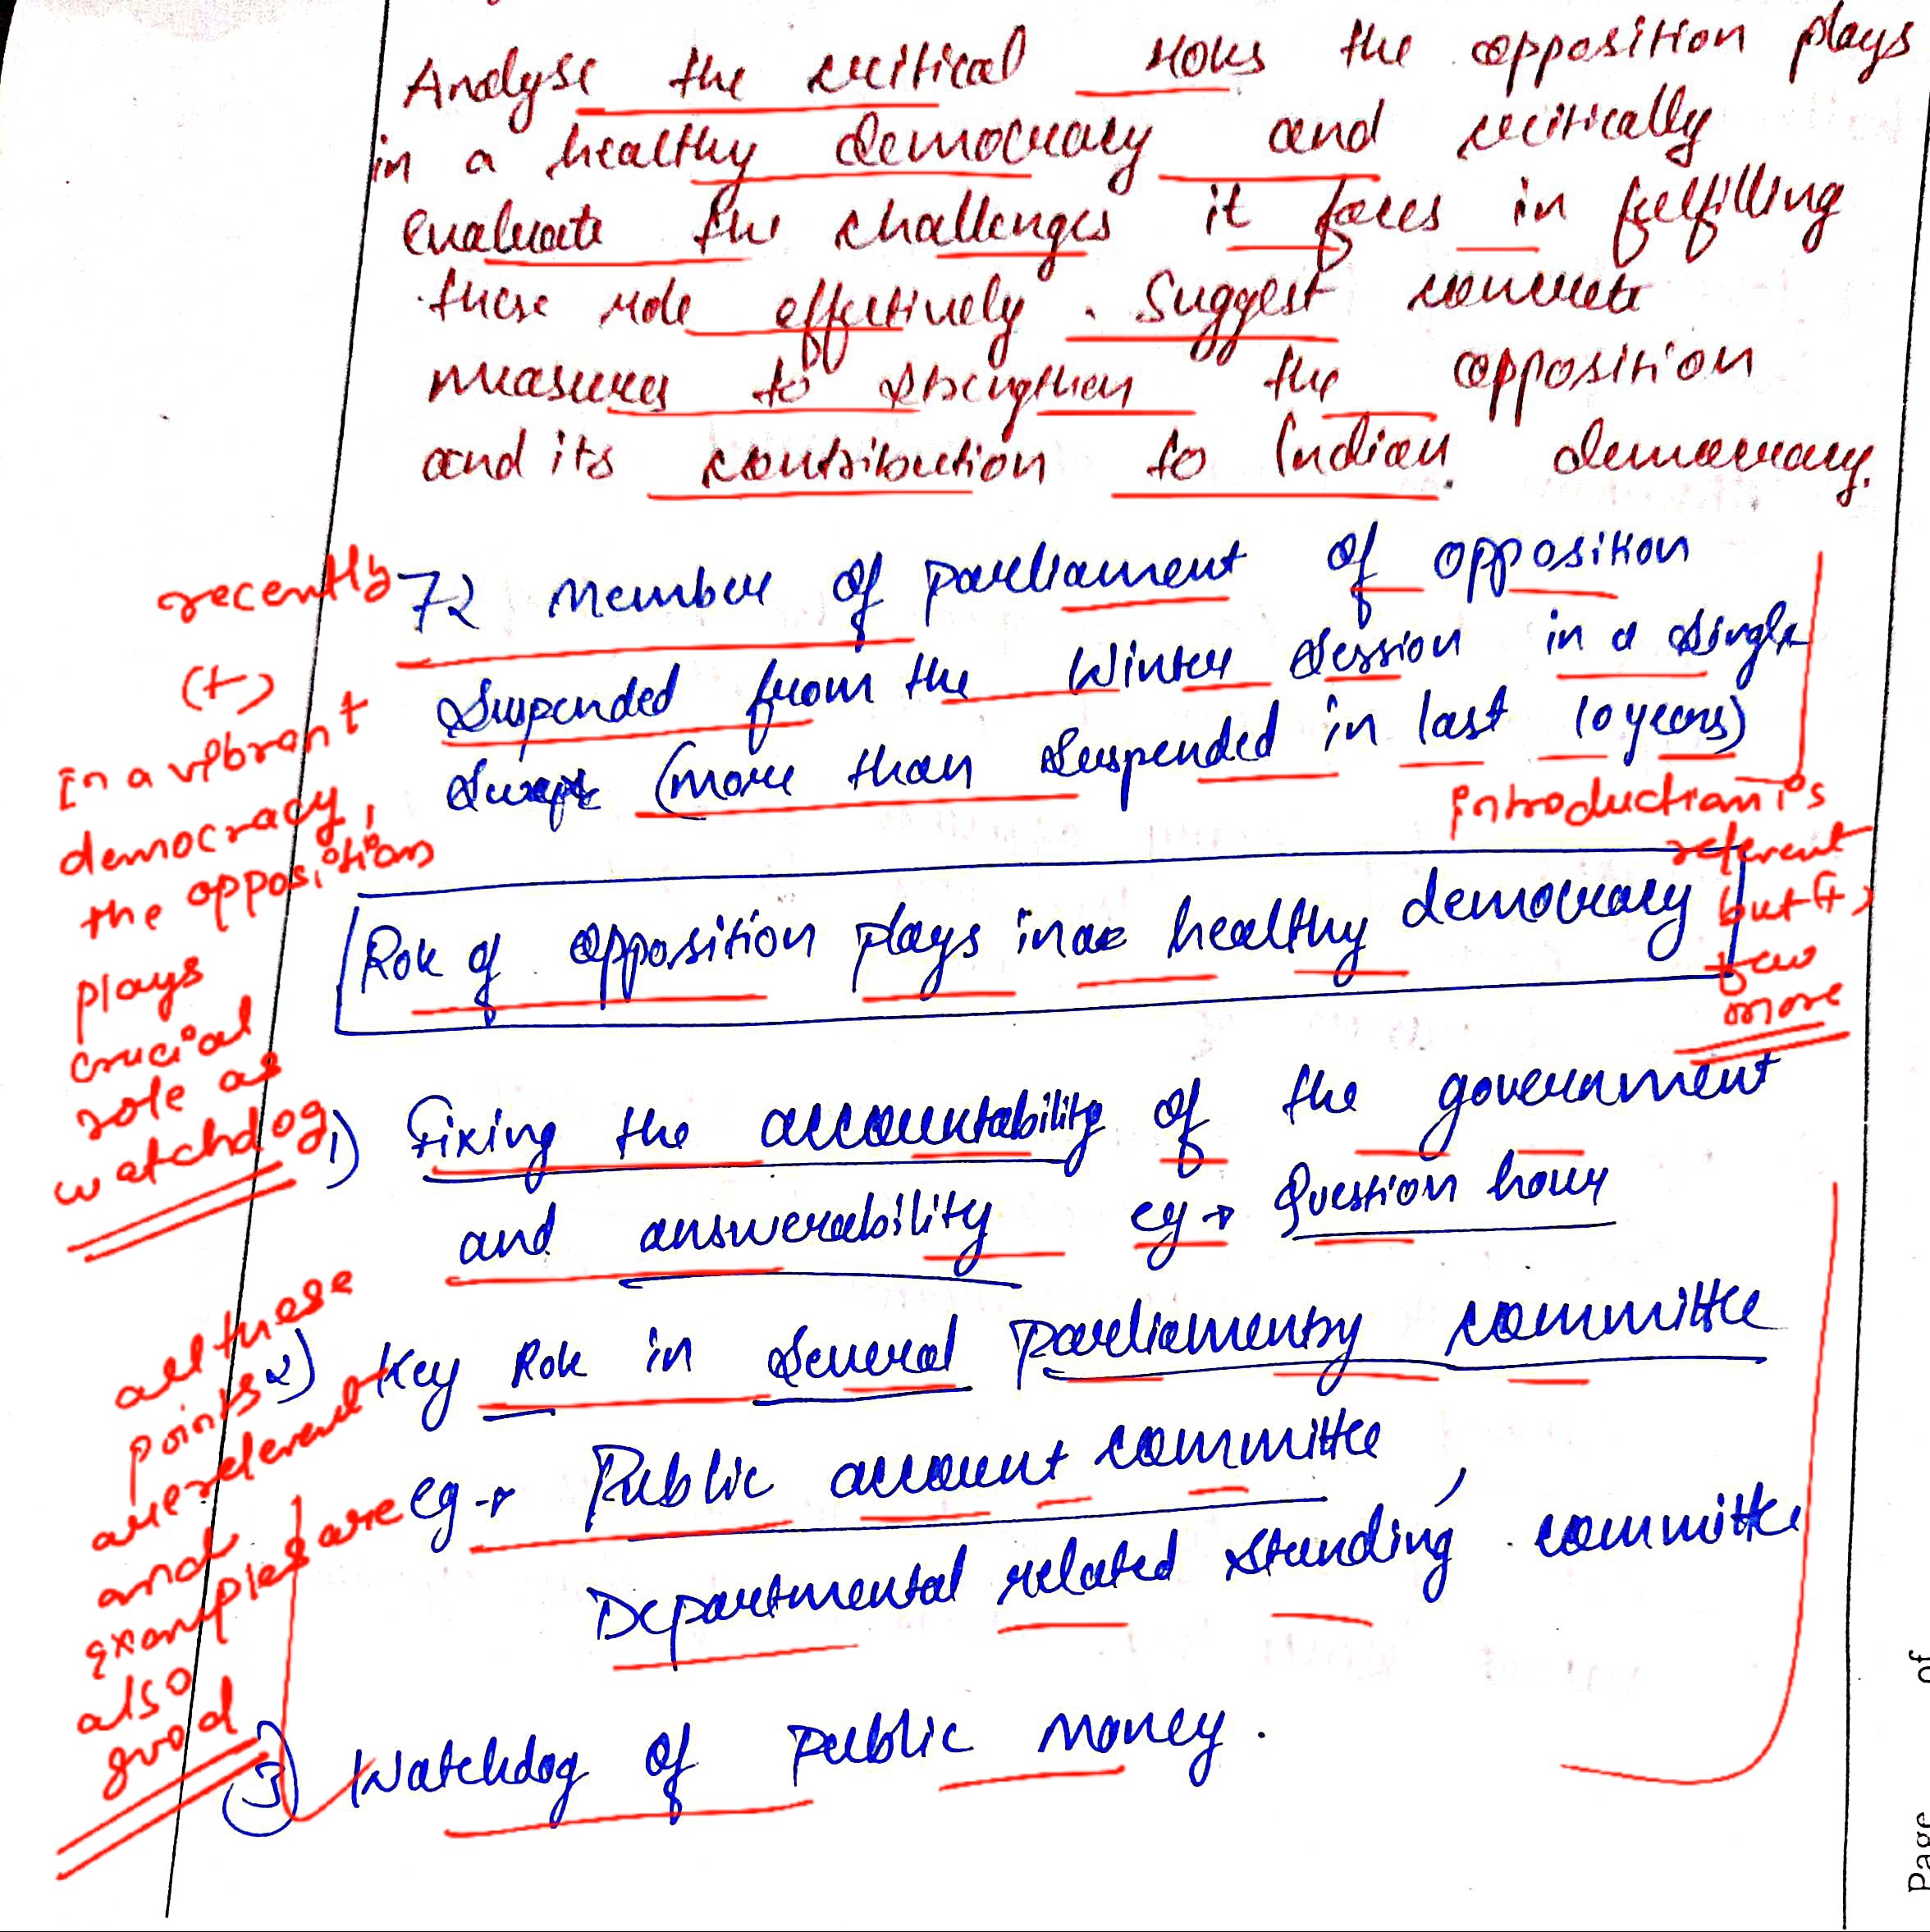 Analyse the critical roles the opposition plays
in a healthy democracy and critically
evaluate the challenges it faces in fulfilling
these role effectively. Suggest concrete
measures to strengthen the opposition
and its contribution to Indian democracy.
recently
72 member of parliament of opposition
suspended from the winter session in a single
(more than suspended in last 10 years)
(+)
In a vibrant
democracy,
the opposition
plays
crucial
role as
watchdog
introduction is
relevent
but (+)
few
more
Role of opposition plays in a healthy democracy
1) Fixing the accountability of the government
and answerability eg → Question hour
2) Key Role in several Parliamentry committee
eg → Public account committee,
Departmental related standing committee
3) Watchdog of public money.
all these
points
are relevent
and
examples are
also
good
Page of